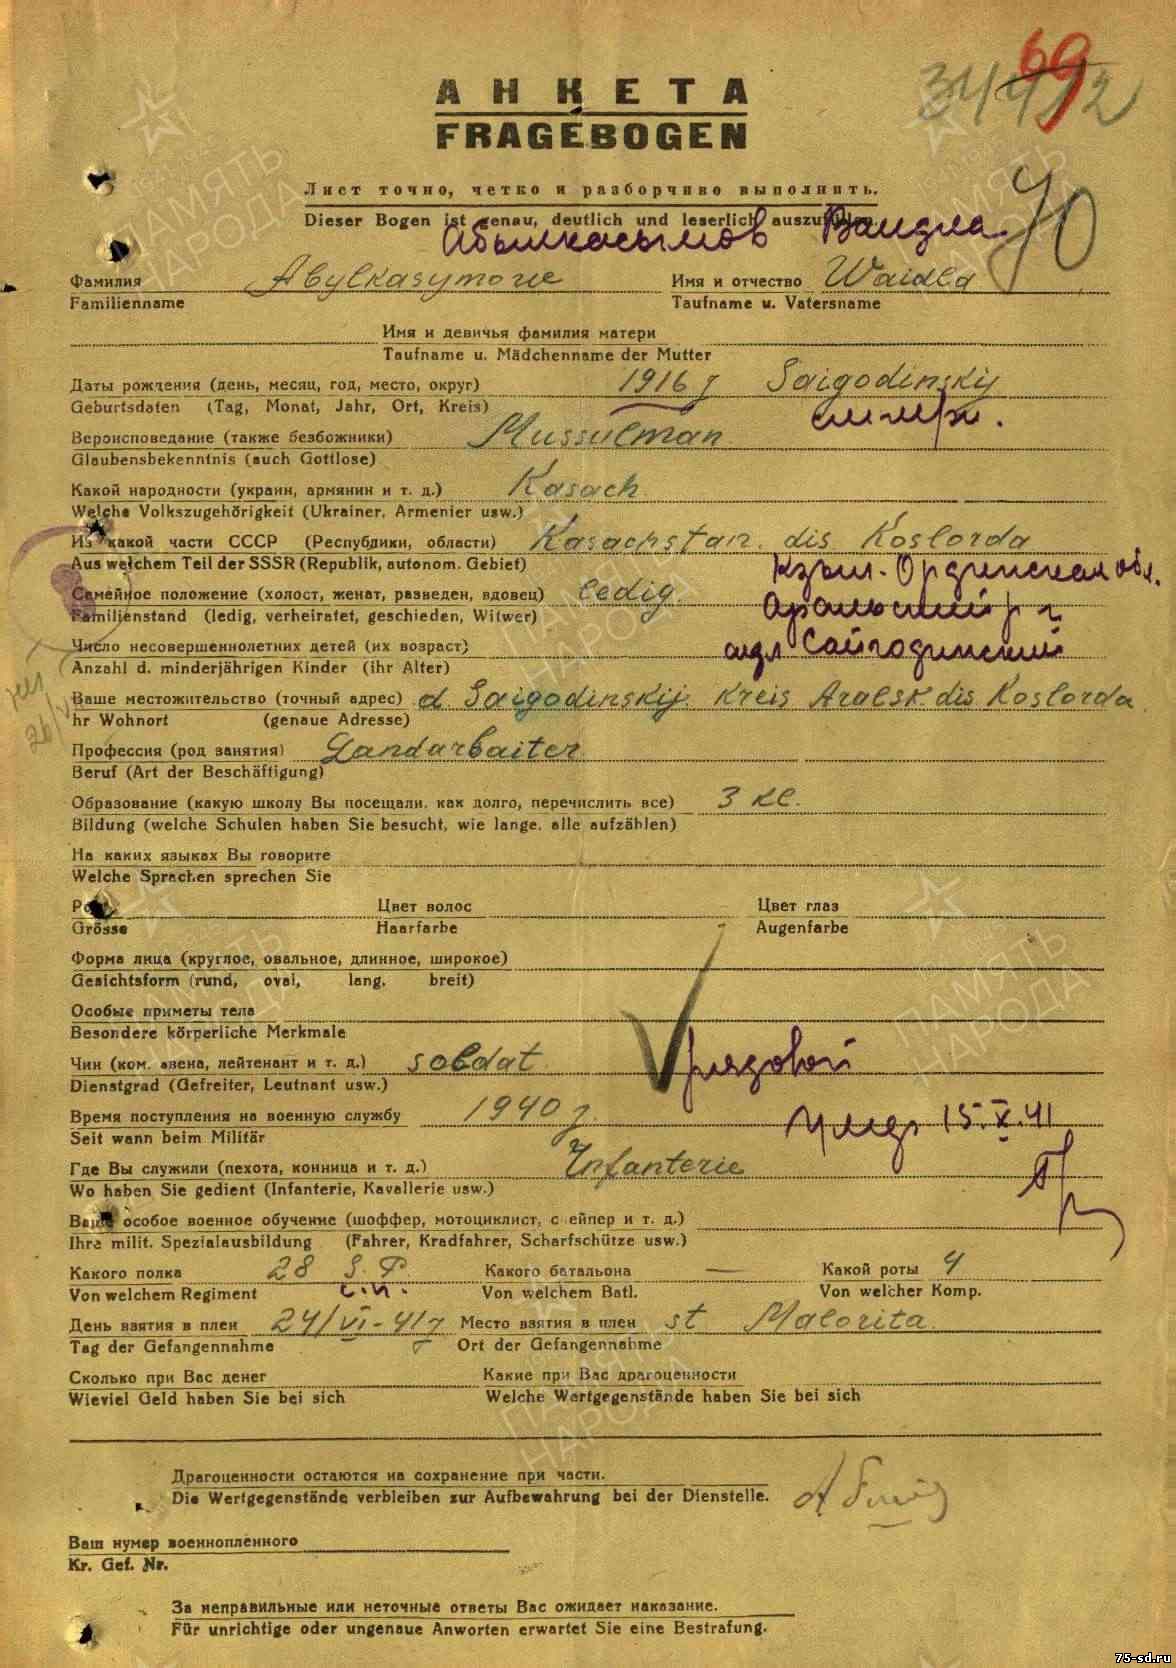 69
34412
АНКЕТА
FRAGEBOGEN
70
Лист точно, четко и разборчиво выполнить.
Dieser Bogen ist genau, deutlich und leserlich auszufüllen.
Абылкасымов Ваидла
Фамилия Abylkasymow Имя и отчество Waidla
Familienname Taufname u. Vatersname
Имя и девичья фамилия матери
Taufname u. Mädchenname der Mutter
Даты рождения (день, месяц, год, место, округ) 1916 г Saigodinskij
Geburtsdaten (Tag, Monat, Jahr, Ort, Kreis)
Вероисповедание (также безбожники) Mussulman
Glaubensbekenntnis (auch Gottlose)
Какой народности (украин, армянин и т. д.) Kasach
Welche Volkszugehörigkeit (Ukrainer, Armenier usw.)
Из какой части СССР (Республики, области) Kasachstan. dis Koslorda
Aus welchem Teil der SSSR (Republik, autonom. Gebiet) Кзыл-Ординская обл.
Семейное положение (холост, женат, разведен, вдовец) ledig.
Familienstand (ledig, verheiratet, geschieden, Witwer) Аральский р-н
Число несовершеннолетних детей (их возраст) аул Сайгодинский
Anzahl d. minderjährigen Kinder (ihr Alter)
Ваше местожительство (точный адрес) d. Saigodinskij. Kreis Aralsk. dis Koslorda
hr Wohnort (genaue Adresse)
Профессия (род занятия) Landarbaiter
Beruf (Art der Beschäftigung)
Образование (какую школу Вы посещали, как долго, перечислить все) 3 кл.
Bildung (welche Schulen haben Sie besucht, wie lange, alle aufzählen)
На каких языках Вы говорите
Welche Sprachen sprechen Sie
Цвет волос Цвет глаз
Grösse Haarfarbe Augenfarbe
Форма лица (круглое, овальное, длинное, широкое)
Gesichtsform (rund, oval, lang, breit)
Особые приметы тела
Besondere körperliche Merkmale
Чин (ком. взвена, лейтенант и т. д.) soldat рядовой
Dienstgrad (Gefreiter, Leutnant usw.)
Время поступления на военную службу 1940 г.
Seit wann beim Militär умер 15.X.41
Где Вы служили (пехота, конница и т. д.) Infanterie
Wo haben Sie gedient (Infanterie, Kavallerie usw.)
Ваше особое военное обучение (шоффер, мотоциклист, снейпер и т. д.)
Ihre milit. Spezialausbildung (Fahrer, Kradfahrer, Scharfschütze usw.)
Какого полка 28 S. P. Какого батальона — Какой роты 4
Von welchem Regiment с.п. Von welchem Batl. Von welcher Komp.
День взятия в плен 24/VI-41 г Место взятия в плен st Malorita
Tag der Gefangennahme Ort der Gefangennahme
Сколько при Вас денег Какие при Вас драгоценности
Wieviel Geld haben Sie bei sich Welche Wertgegenstände haben Sie bei sich
Драгоценности остаются на сохранение при части.
Die Wertgegenstände verbleiben zur Aufbewahrung bei der Dienstelle.
Ваш нумер военнопленного
Kr. Gef. Nr.
За неправильные или неточные ответы Вас ожидает наказание.
Für unrichtige oder ungenaue Anworten erwartet Sie eine Bestrafung.
ПАМЯТЬ НАРОДА
75-sd.ru